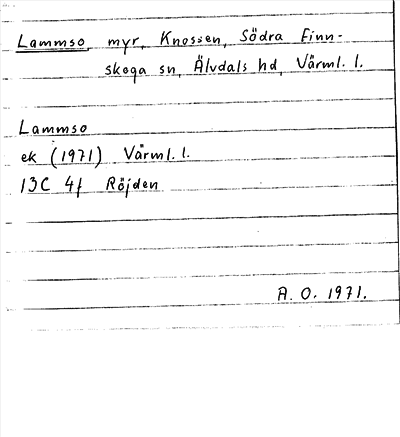 Lammso myr, Knossen, Södra Finn-
skoga sn, Älvdals hd, Värml. l.
Lammso
ek (1971) Värml. l.
13C 4f Röjden
A. O. 1971.